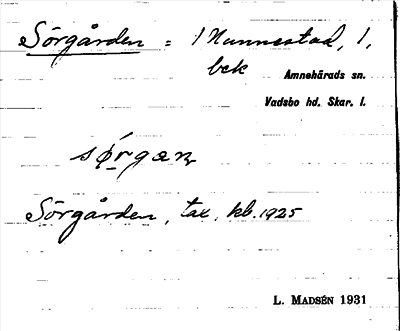 Sörgården = 1 Nunnestad, 1,
bek
Amnehärads sn.
Vadsbo hd. Skar. l.
sǿrgaɳ
Sörgården, tax. kb. 1925
L. MADSÉN 1931